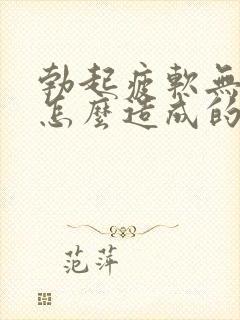 勃起疲軟無
怎麼造成的
范萍